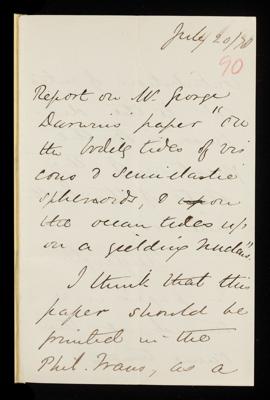 July 20/78
90
Report on Mr. George
Darwin's paper "On
the bodily tides of vis
cous & semielastic
spheroids, & upon
the ocean tides up
on a yielding nucleus".
I think that this
paper should be
printed in the
Phil. Trans, as a